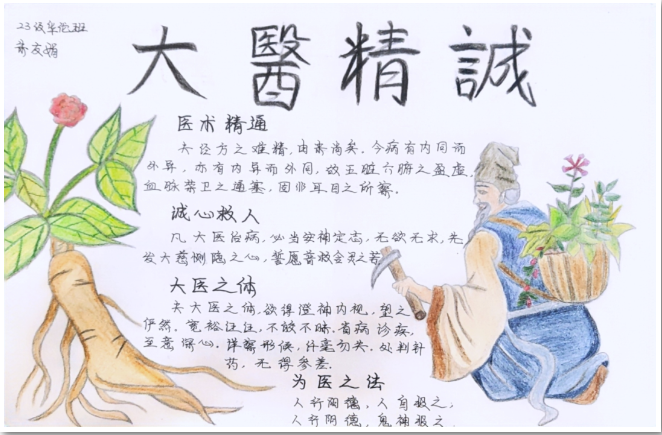 23级
大醫精誠
医术精通
夫经方之难精,由来尚矣。今病有内同而
外异,亦有内异而外同,故五脏六腑之盈虚,
血脉荣卫之通塞,固非耳目之所察。
诚心救人
凡大医治病,必当安神定志,无欲无求,先
发大慈恻隐之心,誓愿普救含灵之苦
大医之体
夫大医之体,欲得澄神内视,望之
俨然。宽裕汪汪,不皎不昧。省病诊疾,
至意深心。详察形候,纤毫勿失。处判针
药,无得参差。
为医之法
人行阳德,人自报之;
人行阴德,鬼神报之